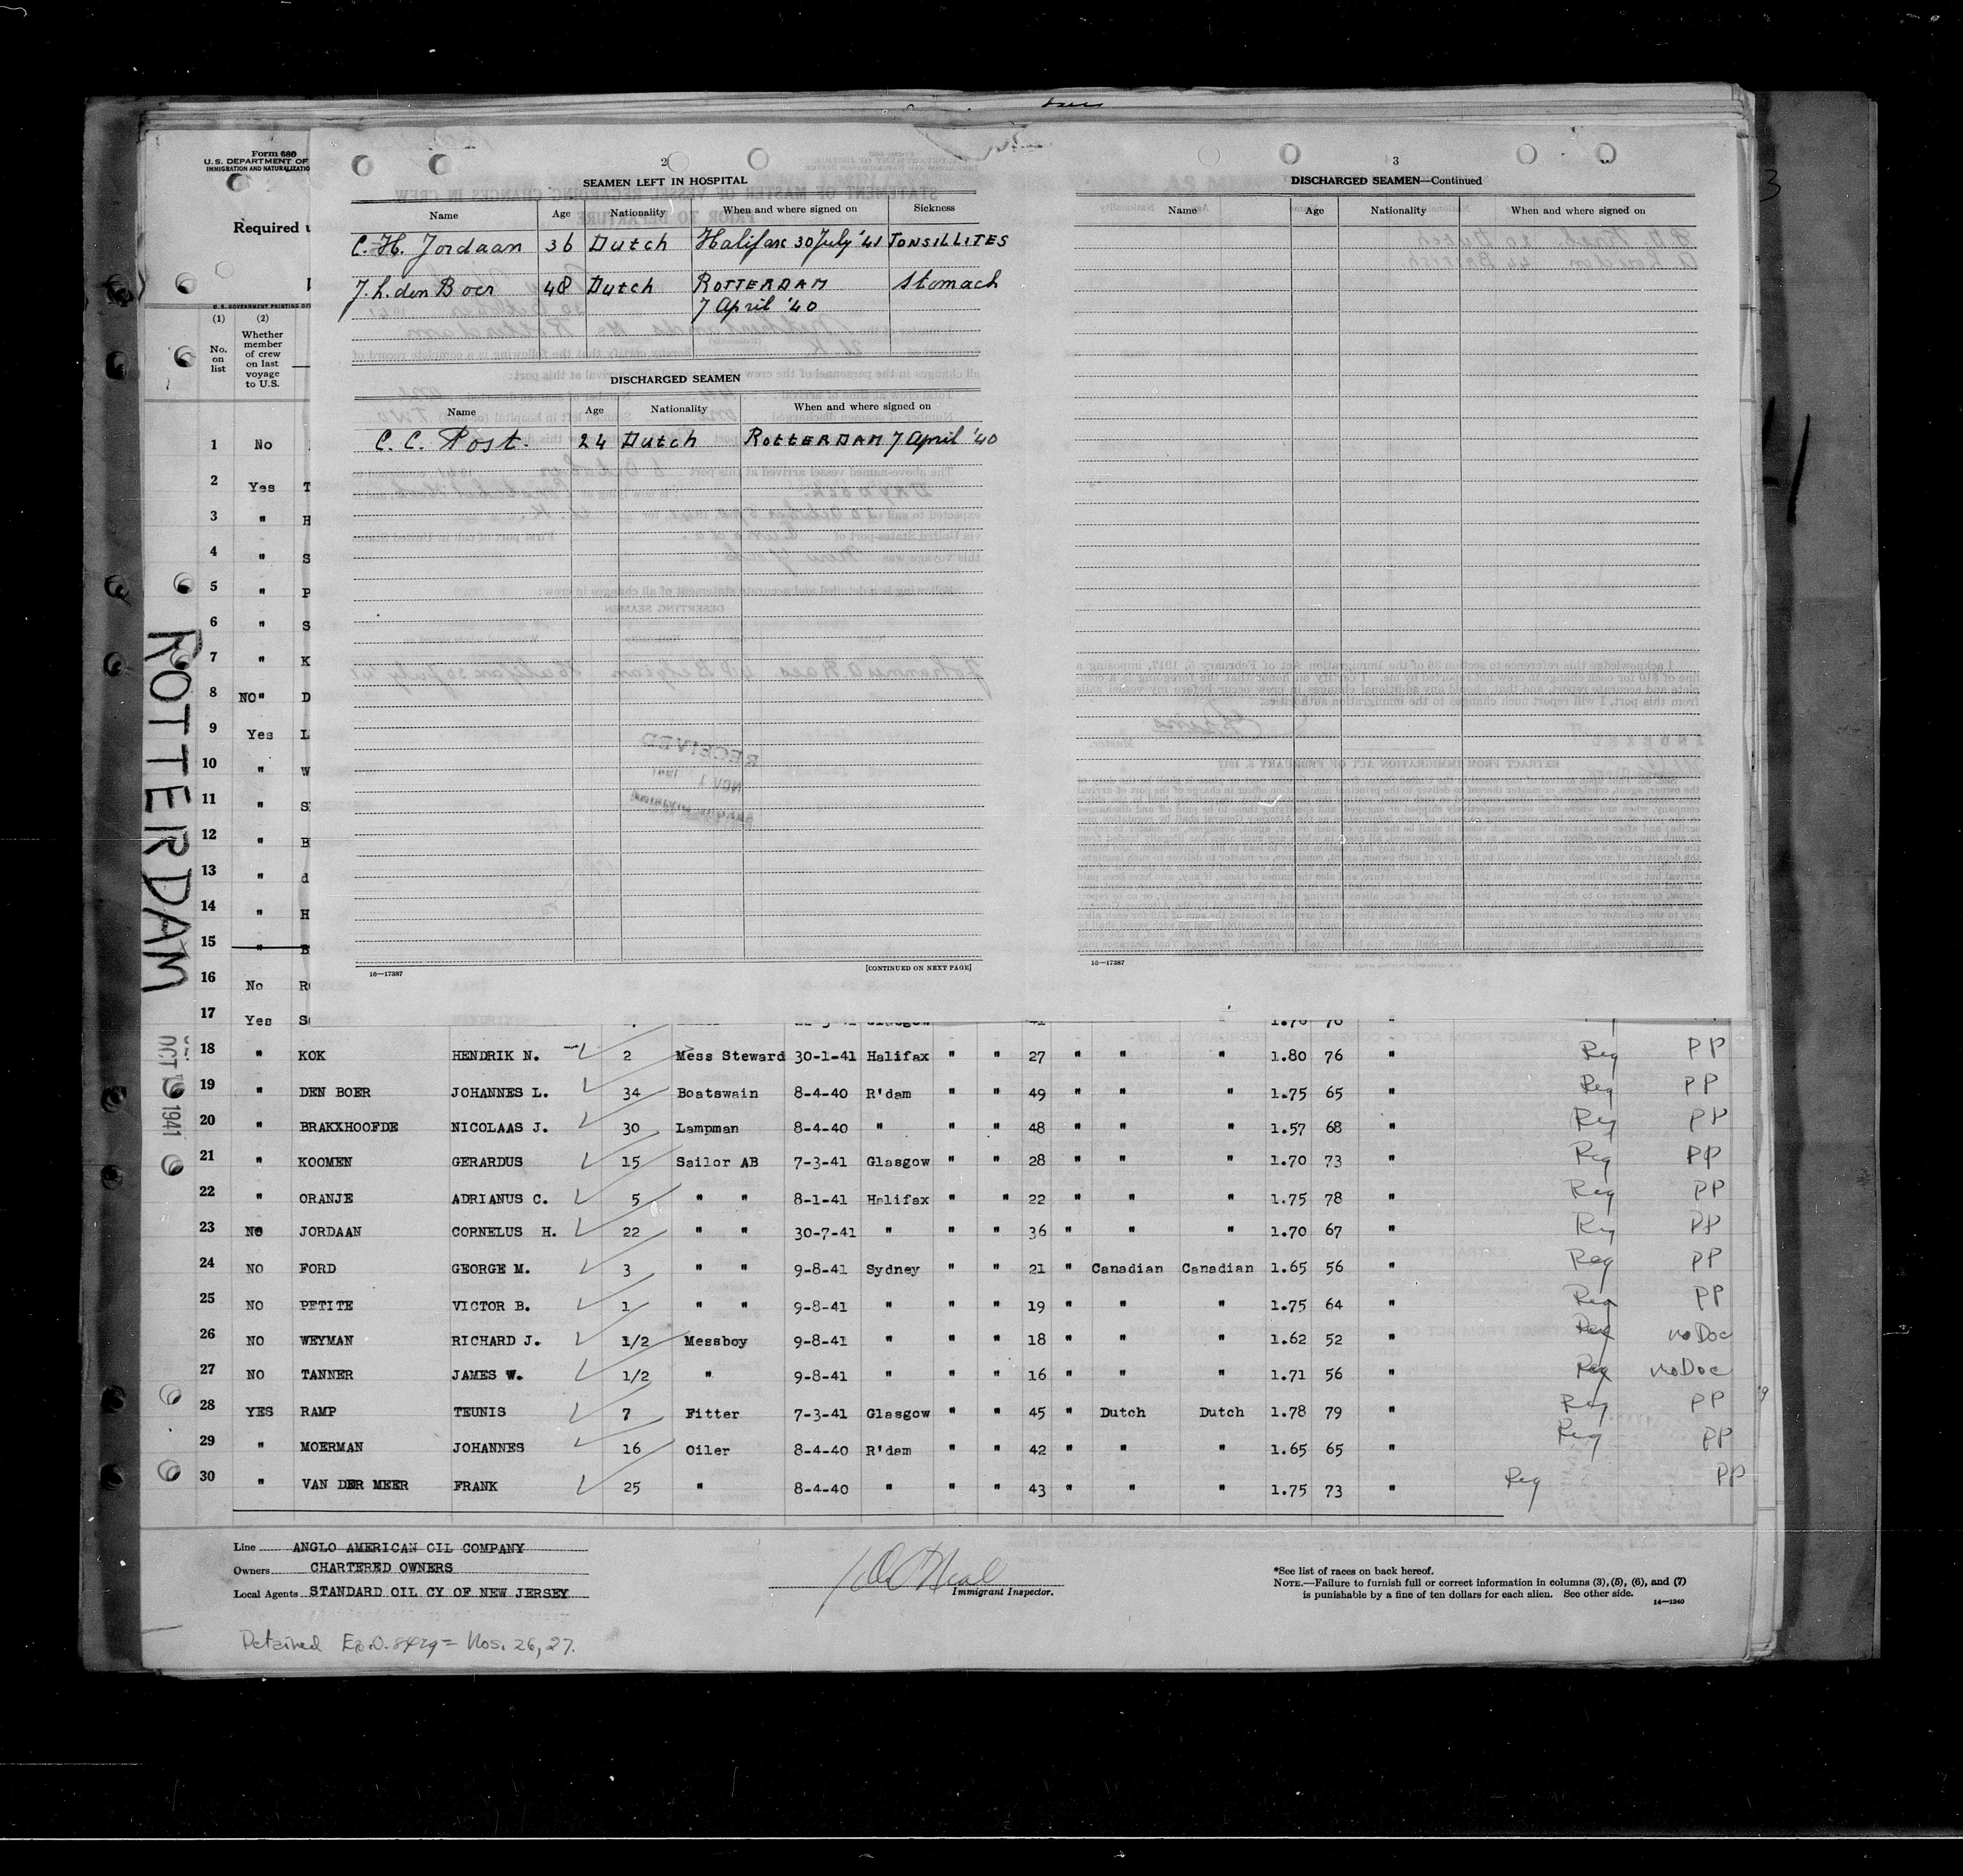 Form 680
U. S. DEPARTMENT OF
IMMIGRATION AND NATURALIZATIO
Required u
U. S. GOVERNMENT PRINTING OF
(1) (2)
No. on list
Whether member of crew on last voyage to U.S.
1 No
2 Yes T
3 " H
4 " S
5 " P
6 " S
7 " K
8 NO" D
9 Yes L
10 " W
11 " S
12 " B
13 " d
14 " H
15 " B
16 No R
17 Yes S
ROTTERDAM
OCT 1941
2
SEAMEN LEFT IN HOSPITAL
Name Age Nationality When and where signed on Sickness
C. H. Jordaan 36 Dutch Halifax 30 July '41 TONSILLITES
J. L. den Boer 48 Dutch ROTTERDAM 7 April '40 Stomach
DISCHARGED SEAMEN
Name Age Nationality When and where signed on
C. C. Post. 24 Dutch ROTTERDAM 7 April '40
16—17387 [CONTINUED ON NEXT PAGE]
3
DISCHARGED SEAMEN—Continued
Name Age Nationality When and where signed on
16—17387
18 " KOK HENDRIK N. 2 Mess Steward 30-1-41 Halifax " " 27 " " " 1.80 76 " Reg PP
19 " DEN BOER JOHANNES L. 34 Boatswain 8-4-40 R'dam " " 49 " " 1.75 65 " Reg PP
20 " BRAKXHOOFDE NICOLAAS J. 30 Lampman 8-4-40 " " " 48 " " " 1.57 68 " Reg PP
21 " KOOMEN GERARDUS 15 Sailor AB 7-3-41 Glasgow " " 28 " " " 1.70 73 " Reg PP
22 " ORANJE ADRIANUS C. 5 " " 8-1-41 Halifax " " 22 " " " 1.75 78 " Reg PP
23 NO JORDAAN CORNELUS H. 22 " " 30-7-41 " " " 36 " " " 1.70 67 " Reg PP
24 NO FORD GEORGE M. 3 " " 9-8-41 Sydney " " 21 " Canadian Canadian 1.65 56 " Reg PP
25 NO PETITE VICTOR B. 1 " " 9-8-41 " " " 19 " " " 1.75 64 " Reg PP
26 NO WEYMAN RICHARD J. 1/2 Messboy 9-8-41 " " " 18 " " " 1.62 52 " Reg no Doc
27 NO TANNER JAMES W. 1/2 " 9-8-41 " " " 16 " " " 1.71 56 " Reg no Doc
28 YES RAMP TEUNIS 7 Fitter 7-3-41 Glasgow " " 45 " Dutch Dutch 1.78 79 " Reg PP
29 " MOERMAN JOHANNES 16 Oiler 8-4-40 R'dam " " 42 " " " 1.65 65 " Reg PP
30 " VAN DER MEER FRANK 25 " 8-4-40 " " " 43 " " " 1.75 73 " Reg PP
Line ANGLO AMERICAN OIL COMPANY
Owners CHARTERED OWNERS
Local Agents STANDARD OIL CY OF NEW JERSEY
Immigrant Inspector.
*See list of races on back hereof.
NOTE.—Failure to furnish full or correct information in columns (3), (5), (6), and (7)
is punishable by a fine of ten dollars for each alien. See other side.
14—1240
Detained Nos. 26, 27.